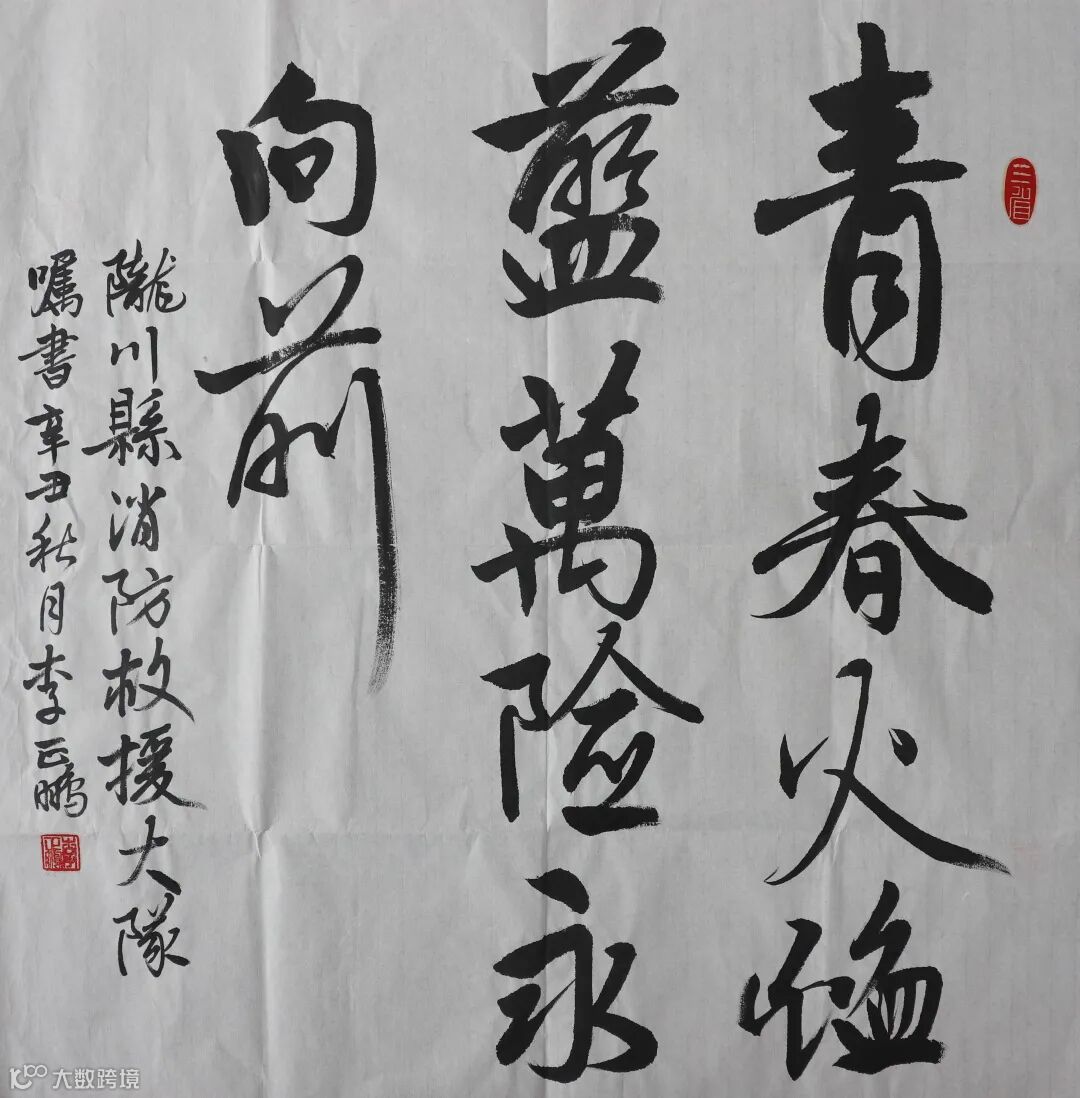 青春火焰
藍萬險永
向前
隴川縣消防救援大隊
囑書辛丑秋月李云鵬
大数跨境